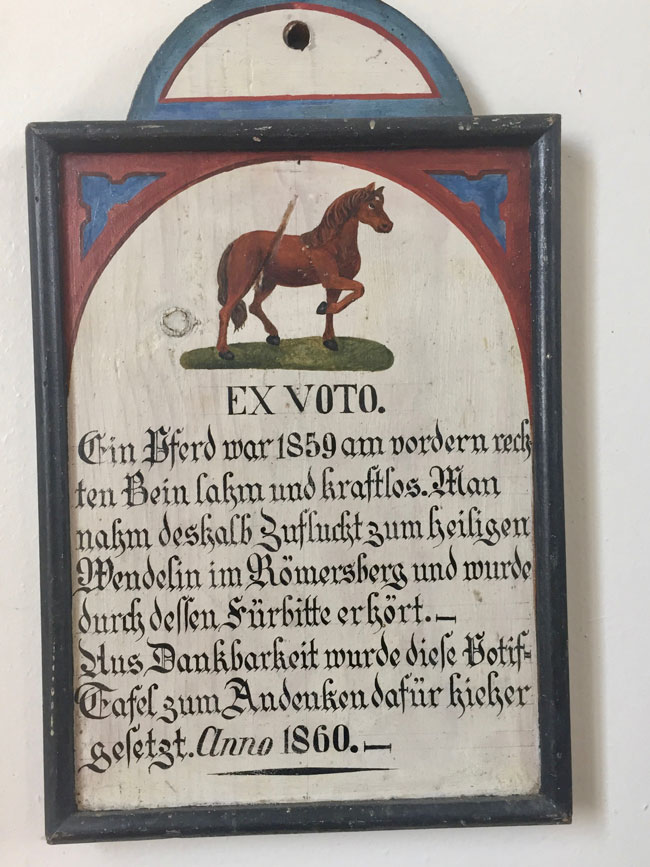 EX VOTO.
Ein Pferd war 1859 am vordern rech
ten Bein lahm und kraftlos. Man
nahm deshalb Zuflucht zum heiligen
Wendelin im Römersberg und wurde
durch deſſen Fürbitte erhört.—
Aus Dankbarkeit wurde dieſe Votif-
Tafel zum Andenken dafür hieher
geſetzt. Anno 1860.—